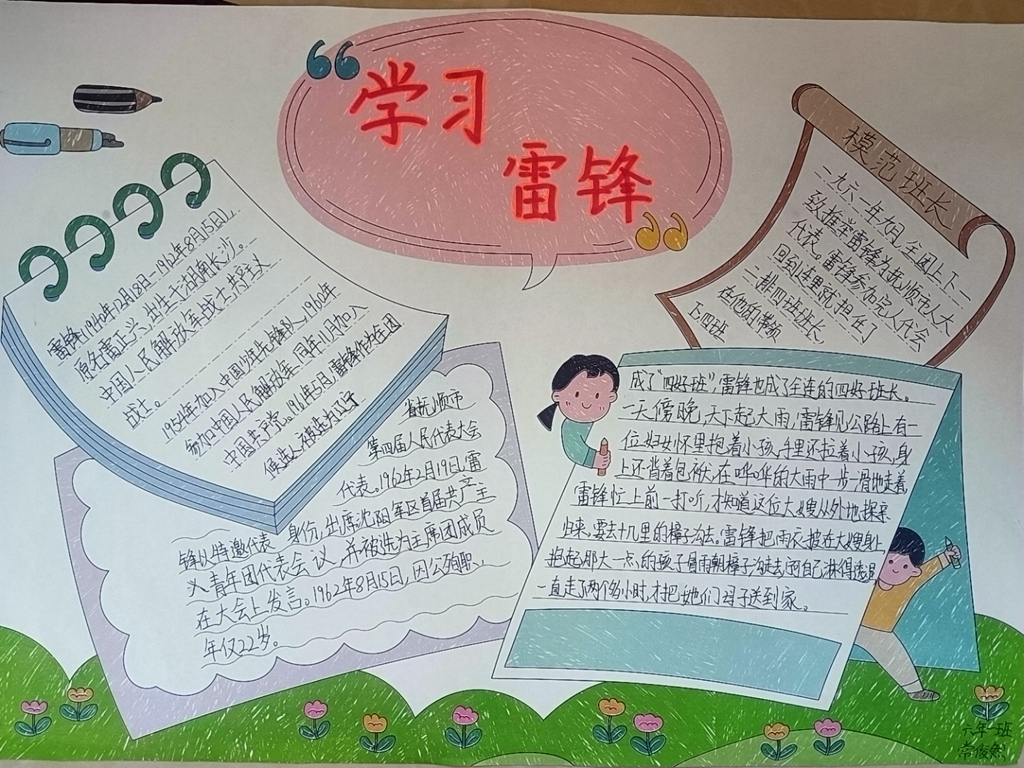 学习
雷锋
雷锋1940年12月18日-1962年8月15日),
原名雷正兴,出生于湖南长沙。
中国人民解放军战士,共产主义
战士。
1954年加入中国少年先锋队,1960年
参加中国人民解放军,同年11月加入
中国共产党。1961年5月,雷锋作为在团
候选人被选为辽宁
省抚顺市
第四届人民代表大会
代表。1962年2月19日,雷
锋以特邀代表身份,出席沈阳军区首届共产主
义青年团代表会议,并被选为主席团成员
在大会上发言。1962年8月15日,因公殉职.
年仅22岁。
模范班长
一九六一年九月,全团上下一
致推举雷锋为抚顺市人大
代表。雷锋参加完人代会
回到连里就担任了
二排四班班长。
在他的带领
下四班
成了“四好班”,雷锋也成了全连的四好班长。
一天傍晚,天下起大雨,雷锋见公路上有一
位妇女怀里抱着小孩,手里还拉着小孩,身
上还背着包袱,在哗哗的大雨中一步一滑地走着,
雷锋忙上前一打听,才知道这位大嫂从外地探亲
归来,要去十几里的樟子沟去。雷锋把雨衣披在大嫂身上
抱起那大一点的孩子冒雨朝樟子沟走去,而自己淋得透湿
一直走了两个多小时,才把她们母子送到家。
六年一班